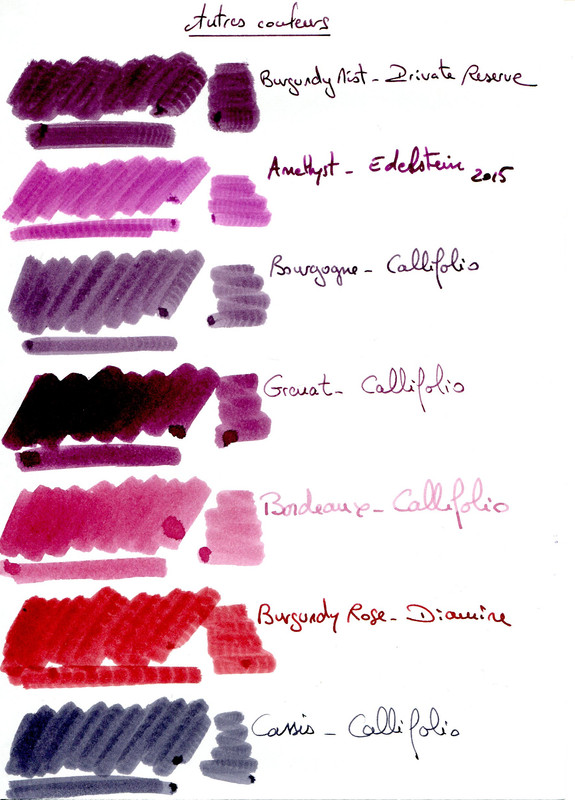 Autres couleurs
Burgundy Mist - Private Reserve
Amethyst - Edelstein 2015
Bourgogne - Callifolio
Grenat - Callifolio
Bordeaux - Callifolio
Burgundy Rose - Diamine
Cassis - Callifolio